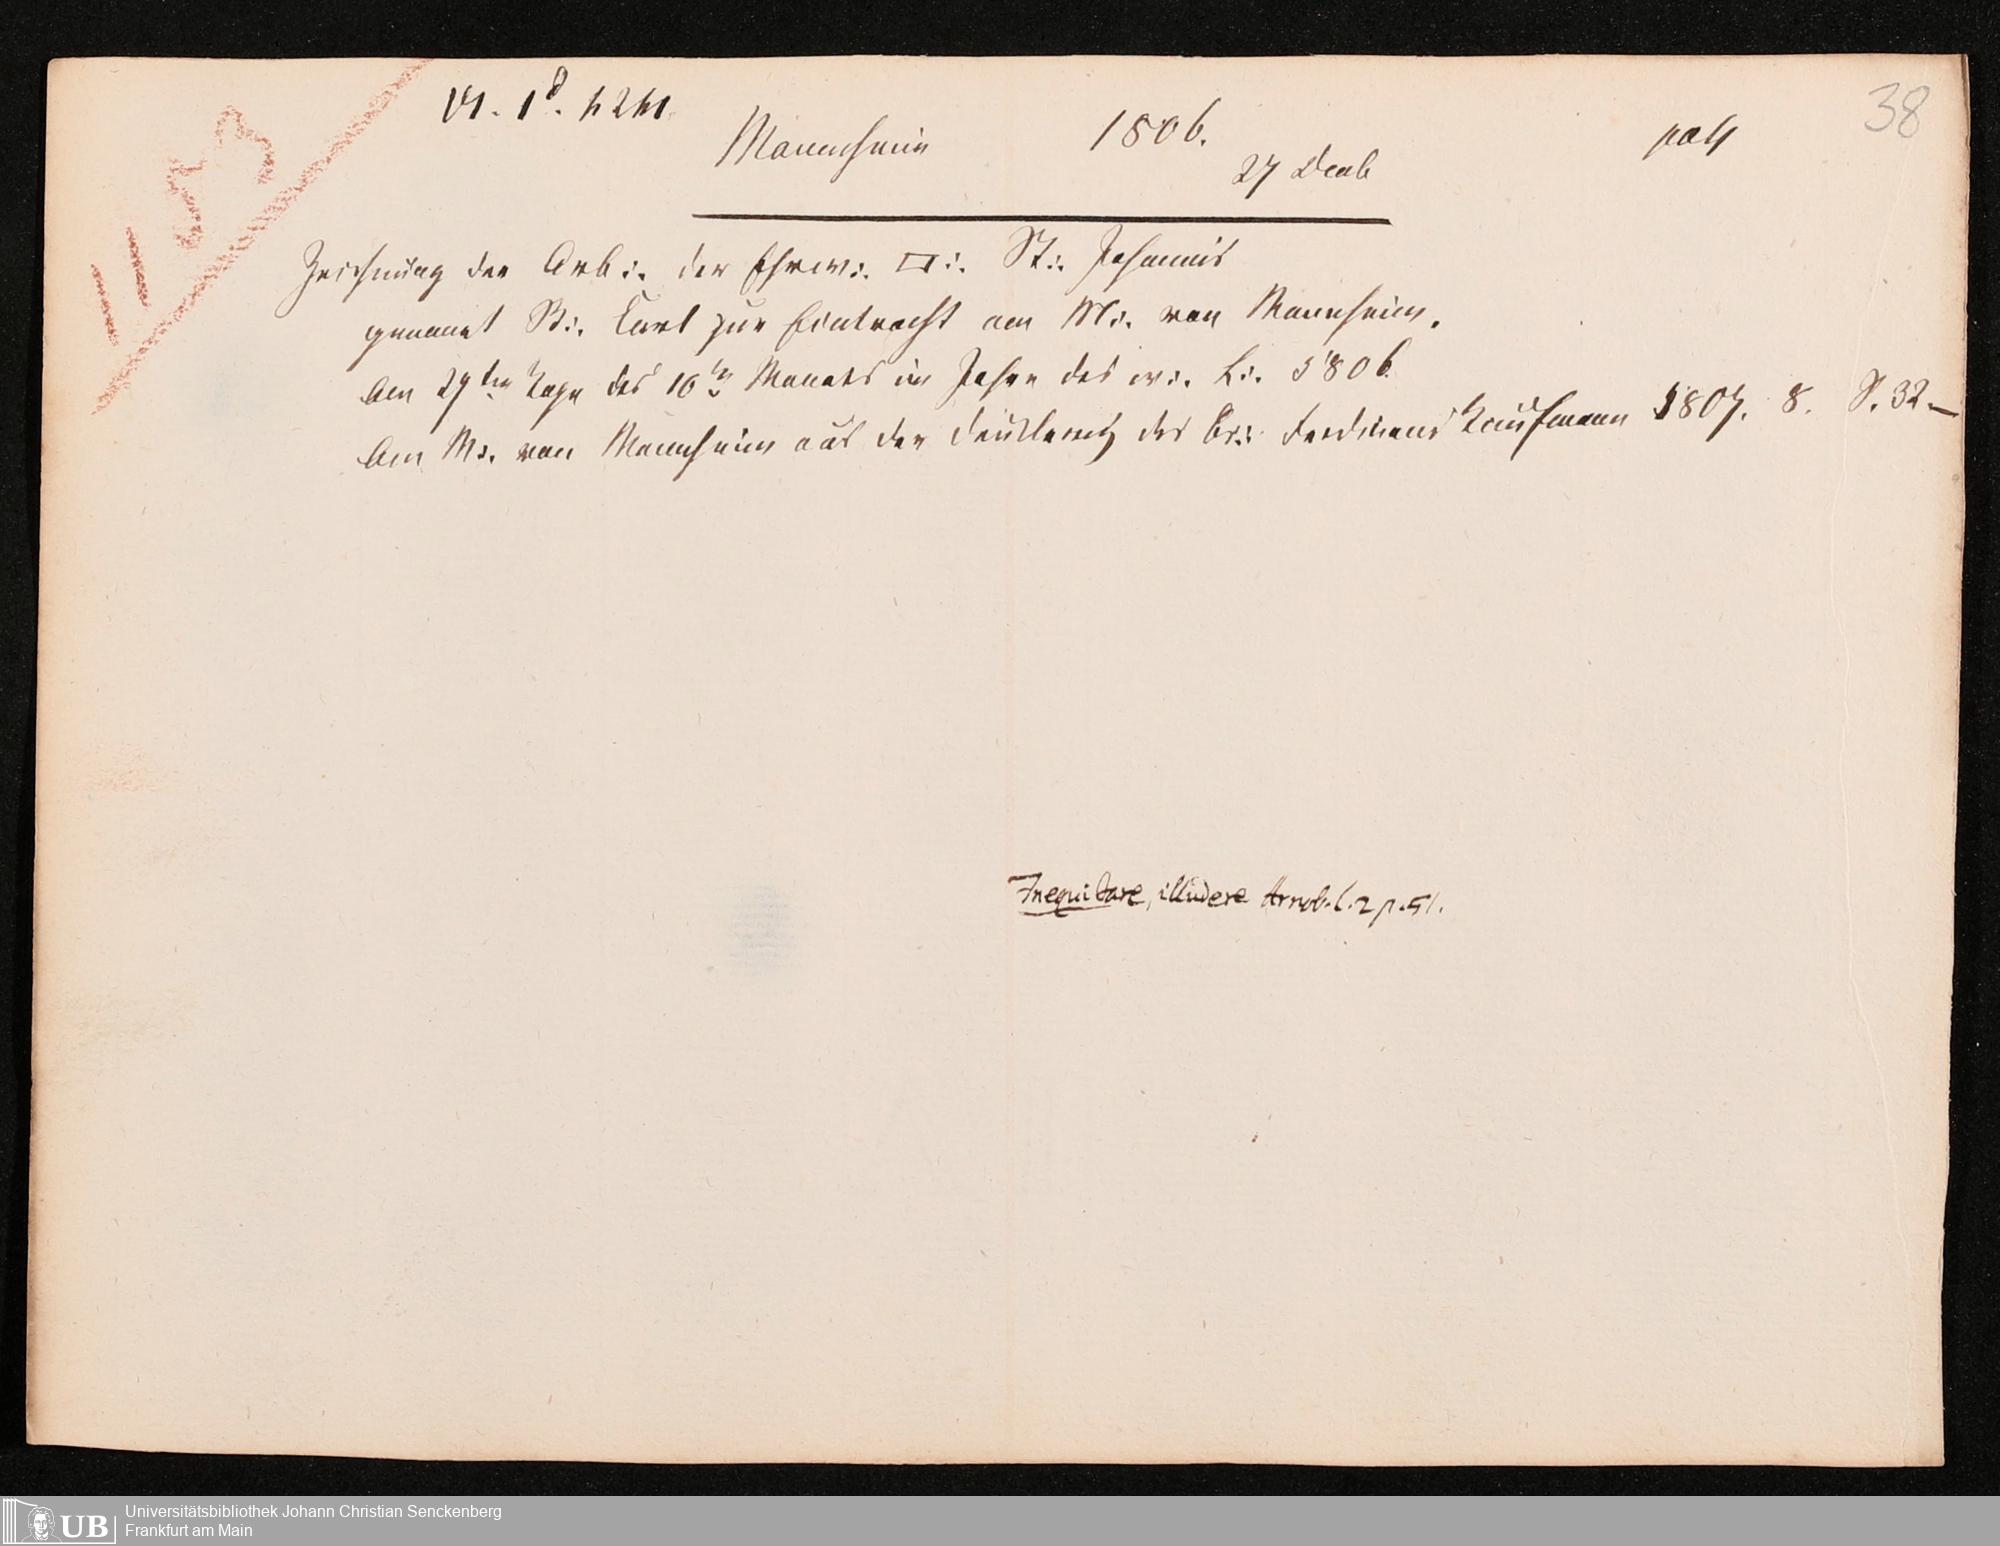 38
VI. 1 d. h 2 h1.
Mannheim 1806.
27 Decb
1153
Zeichnung der Arb∴ der Ehrw∴ □∴ St∴ Johannis
genannt St∴ Carl zur Eintracht am M∴ von Mannheim.
Am 27ten Tage des 10ten Monats im Jahre des w∴ L∴ 5806
Am M∴ von Mannheim aus der Druckerey des Br∴ Ferdinand Kaufmann 5807. 8. S. 32 –
Inequitare, illudere Arnob. l. 2 p. 51.
UB Universitätsbibliothek Johann Christian Senckenberg
Frankfurt am Main